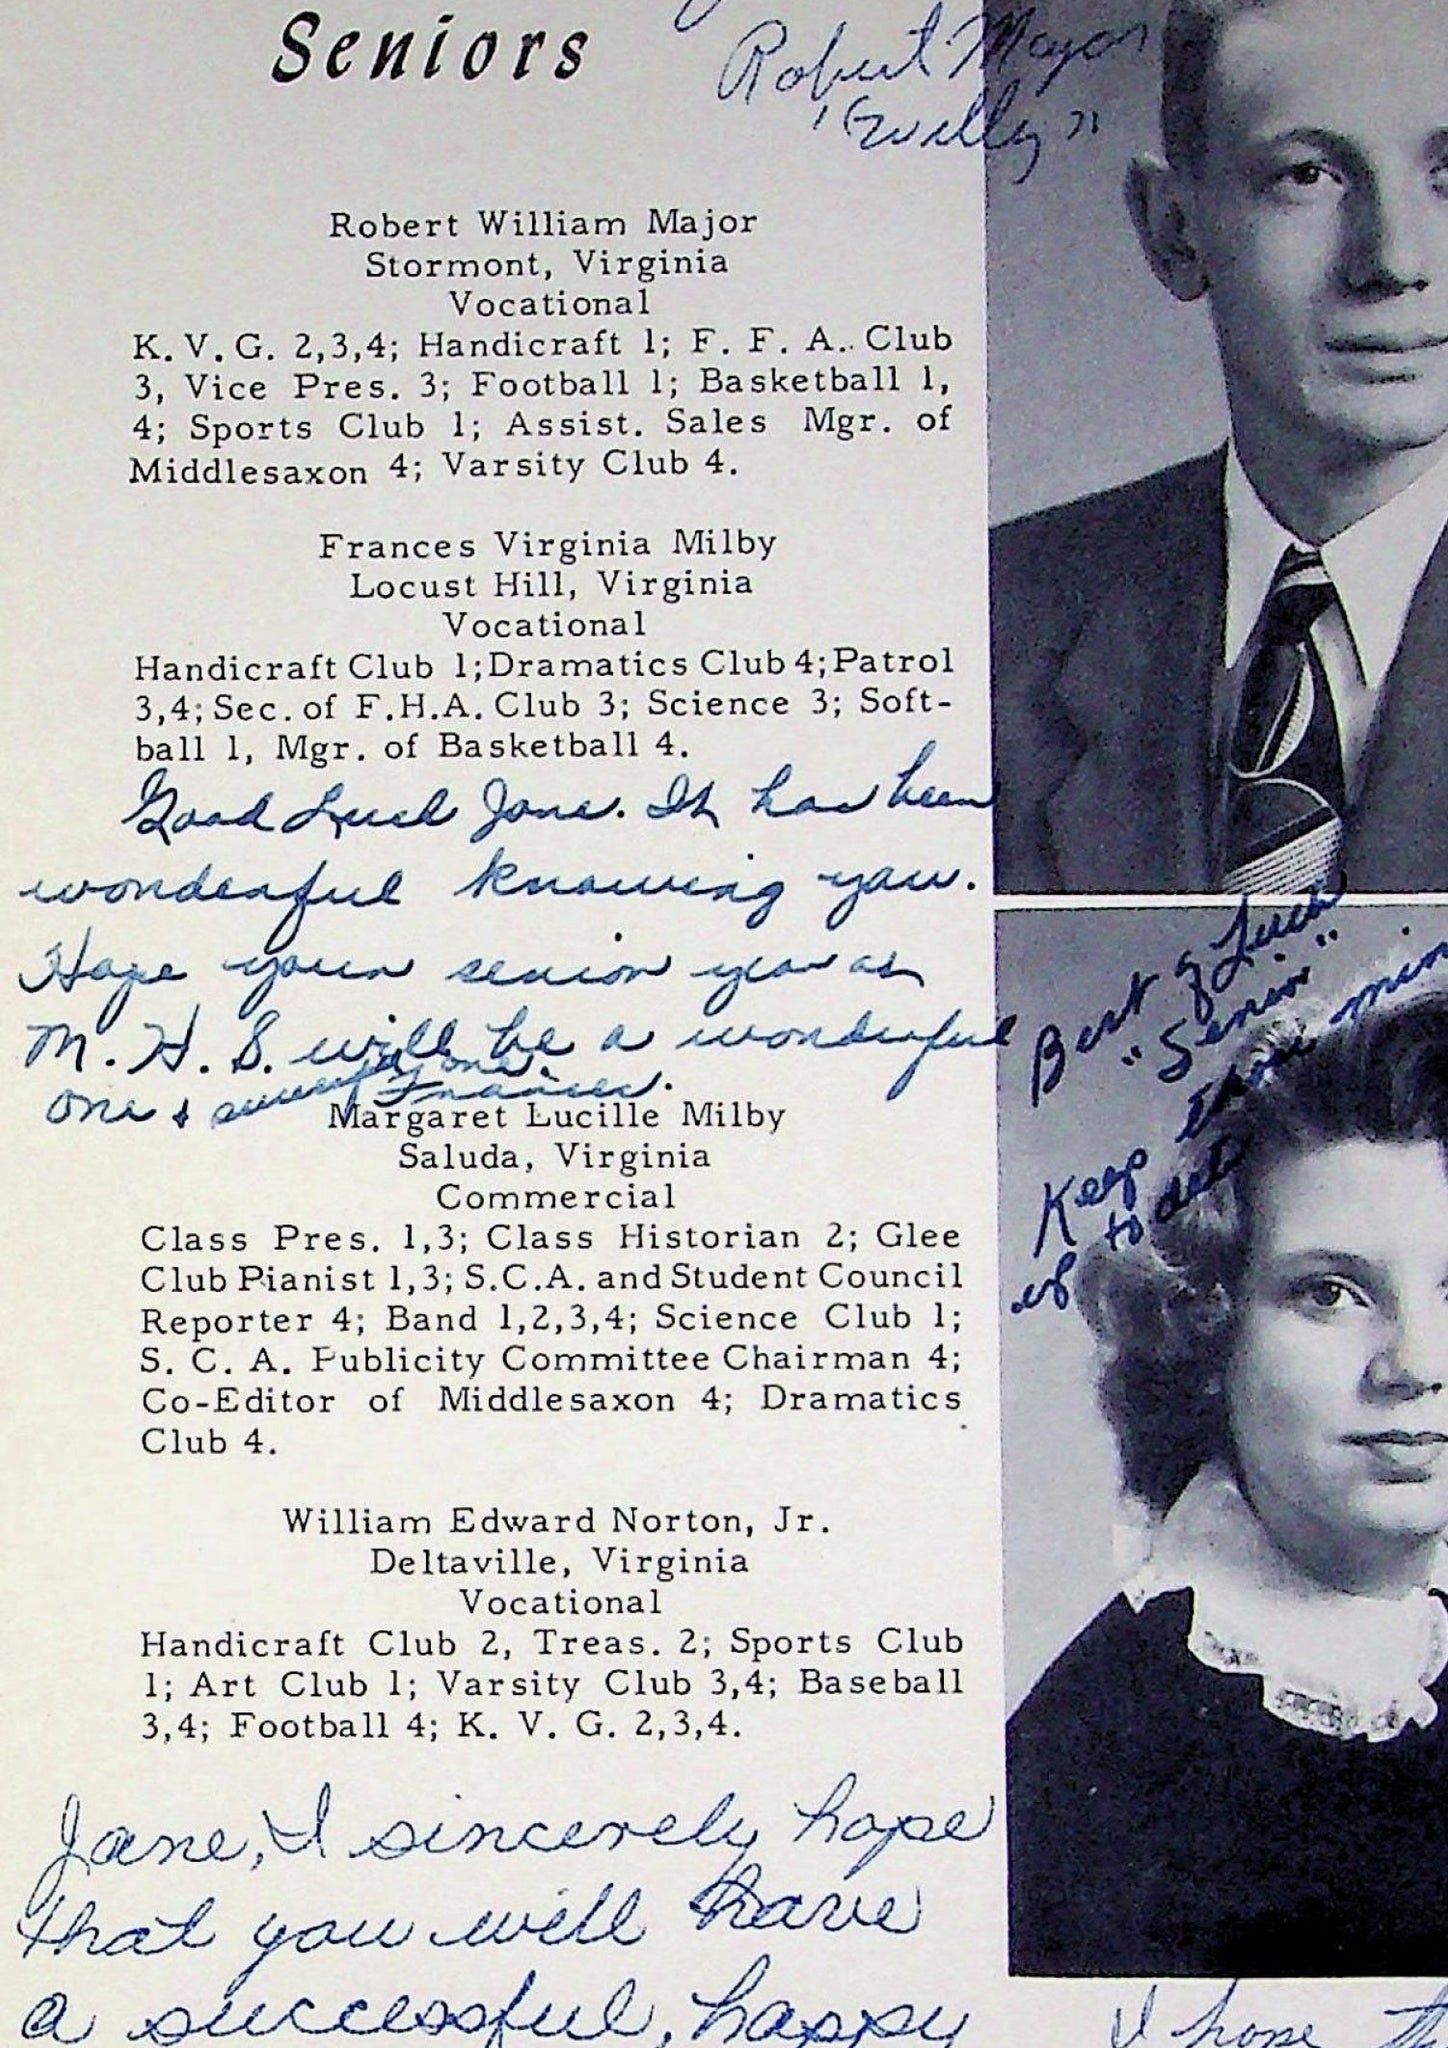 Seniors
Robert Major
"Willy"
Robert William Major
Stormont, Virginia
Vocational
K. V. G. 2,3,4; Handicraft 1; F. F. A. Club
3, Vice Pres. 3; Football 1; Basketball 1,
4; Sports Club 1; Assist. Sales Mgr. of
Middlesaxon 4; Varsity Club 4.
Frances Virginia Milby
Locust Hill, Virginia
Vocational
Handicraft Club 1; Dramatics Club 4; Patrol
3,4; Sec. of F.H.A. Club 3; Science 3; Soft-
ball 1, Mgr. of Basketball 4.
Good Luck Jane. It has been
wonderful knowing you.
Hope your senior year as
M. H. S. will be a wonderful
one &
Frances.
Margaret Lucille Milby
Saluda, Virginia
Commercial
Class Pres. 1,3; Class Historian 2; Glee
Club Pianist 1,3; S.C.A. and Student Council
Reporter 4; Band 1,2,3,4; Science Club 1;
S. C. A. Publicity Committee Chairman 4;
Co-Editor of Middlesaxon 4; Dramatics
Club 4.
William Edward Norton, Jr.
Deltaville, Virginia
Vocational
Handicraft Club 2, Treas. 2; Sports Club
1; Art Club 1; Varsity Club 3,4; Baseball
3,4; Football 4; K. V. G. 2,3,4.
Best of Luck
"Senior"
Keep those
up to
Jane, I sincerely hope
that you will have
a successful, happy
I hope